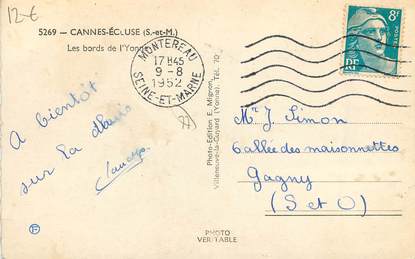 12-€
5269 — CANNES-ÉCLUSE (S.-et-M.)
Les bords de l'Yonne
MONTEREAU
17H45
9-8
1952
SEINE-ET-MARNE
8F
RF
77
A bientôt
sur la
Photo-Edition E. Mignon,
Villeneuve-la-Guyard (Yonne). Tél. 70
Mr J. Simon
6 allée des maisonnettes
Gagny
(S et O)
PHOTO
VERITABLE